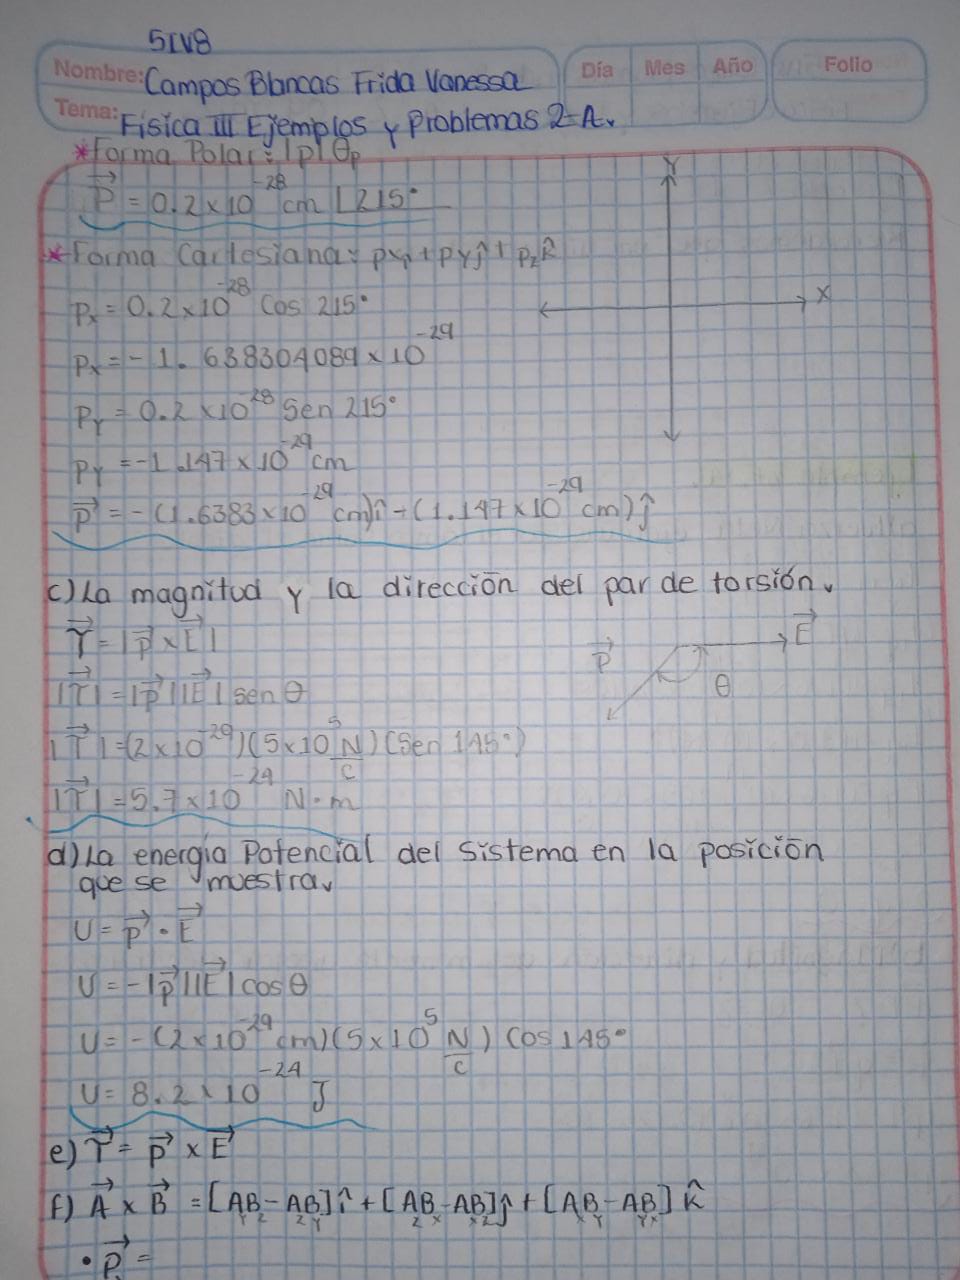 5IV8
Nombre: Campos Blancas Frida Vanessa
Día Mes Año Folio
Tema: Física III Ejemplos y Problemas 2-A.
*Forma Polar: |p| θp
P⃗ = 0.2x10⁻²⁸ cm ∟215°
*Forma Cartesiana: pxî + pyĵ + pzk̂
Px = 0.2x10⁻²⁸ Cos 215°
Px = -1.638304089x10⁻²⁹
Py = 0.2x10⁻²⁸ Sen 215°
Py = -1.147x10⁻²⁹ cm
p⃗ = -(1.6383x10⁻²⁹ cm)î - (1.147x10⁻²⁹ cm)ĵ
Y
X
c) La magnitud y la dirección del par de torsión.
T⃗ = |p⃗ x E⃗|
|T⃗| = |p⃗||E⃗| sen θ
|T⃗| = (2x10⁻²⁹)(5x10⁵ N/C)(Sen 145°)
|T⃗| = 5.7x10⁻²⁴ N·m
P⃗ E⃗
θ
d) La energía Potencial del sistema en la posición
que se muestra.
U = p⃗ · E⃗
U = -|p⃗||E⃗| cos θ
U = -(2x10⁻²⁹ cm)(5x10⁵ N/C) Cos 145°
U = 8.2x10⁻²⁴ J
e) T⃗ = p⃗ x E⃗
f) A⃗ x B⃗ = [AyBz - AzBy]î + [AzBx - AxBz]ĵ + [AxBy - AyBx] k̂
• P⃗ =